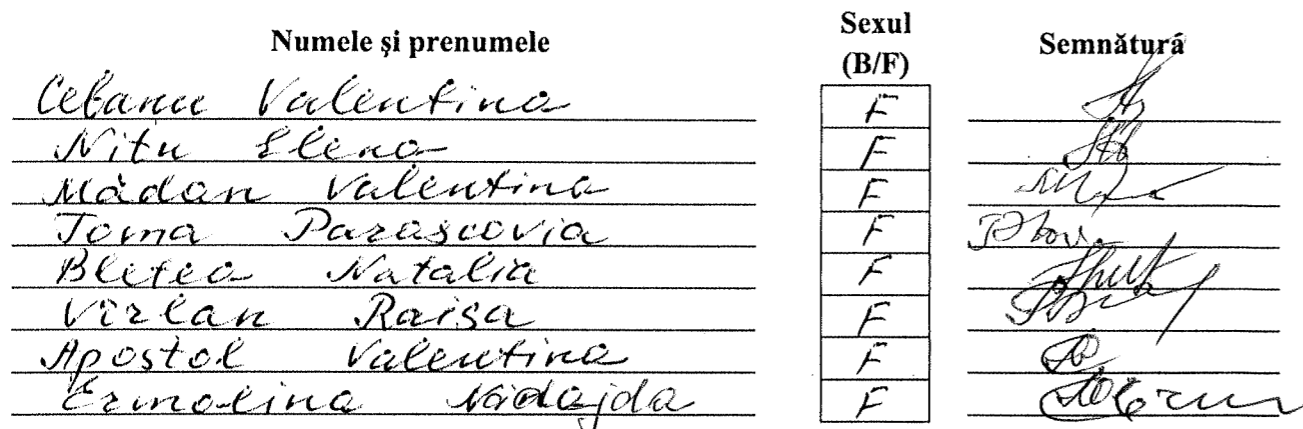 Numele şi prenumele Sexul (B/F) Semnătură
Cebanu Valentina F
Nitu Elena F
Mădan Valentina F
Toma Parascovia F
Bletea Natalia F
Vîrlan Raisa F
Apostol Valentina F
Ermolina Nădajda F